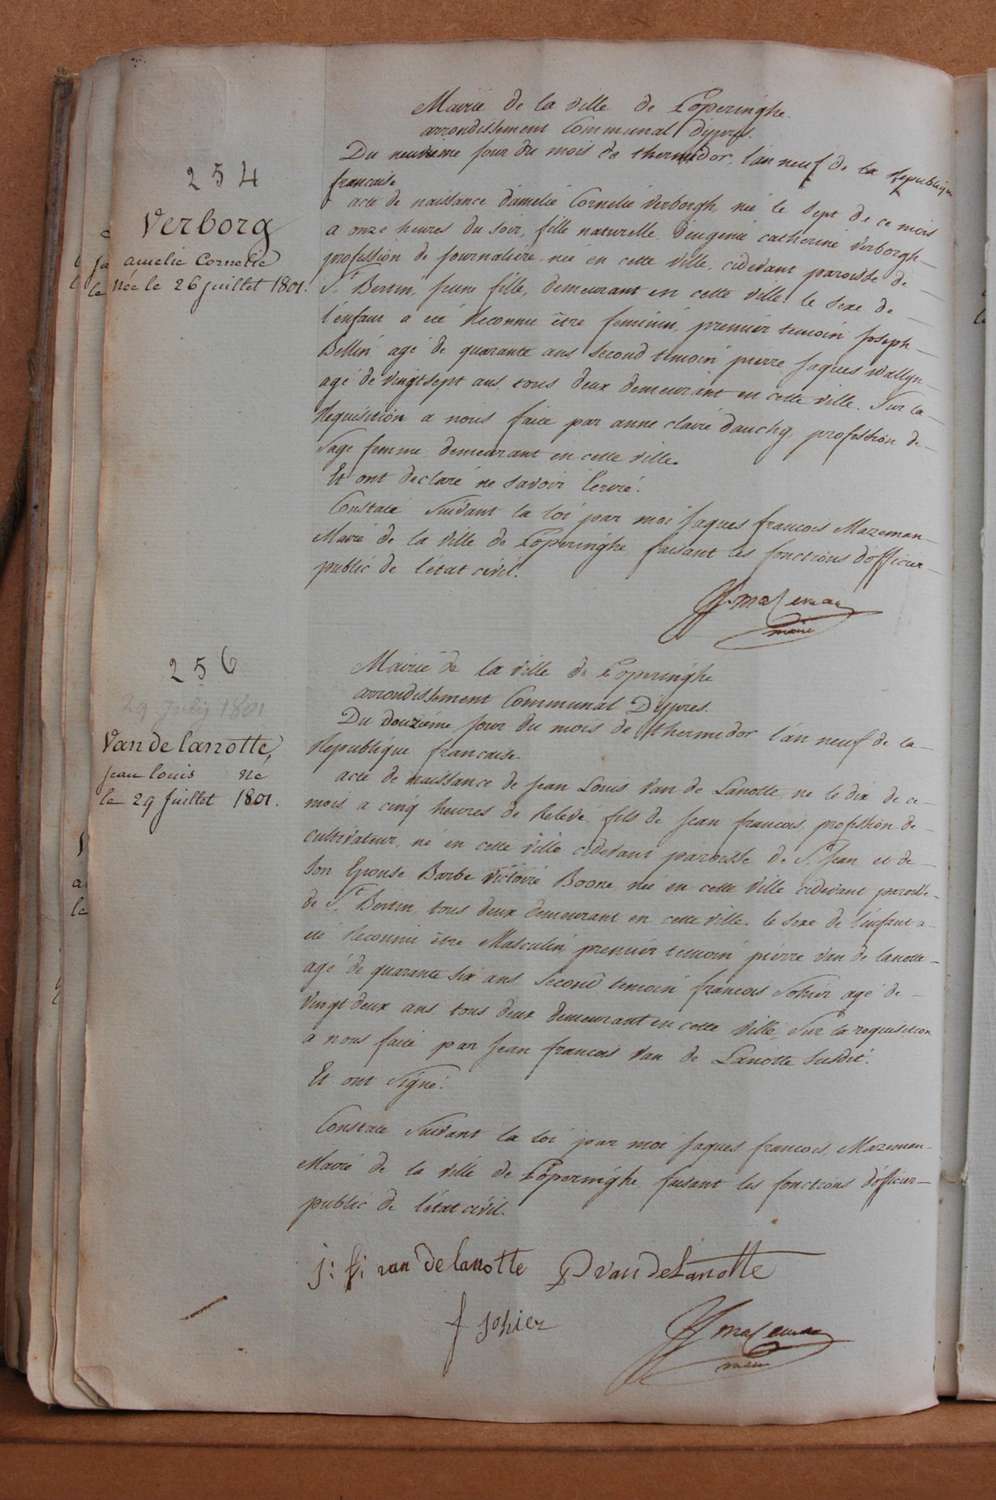 254
Verborg
amelie Cornelie
Née le 26 juillet 1801.
Mairie de la ville de Poperinghe.
arrondissement Communal d'ypres.
Du neuvieme jour du mois de thermidor, l'an neuf de la Republique
francaise
acte de naissance d'amelie Cornelie Verborgh, née le sept de ce mois
a onze heures du soir, fille naturelle d'eugenie catherine Verborgh
profession de journaliere, née en cette ville, cidevant paroisse de
St. Bertin, jeune fille, demeurant en cette ville. le sexe de
l'enfant a été reconnu être feminin, premier temoin joseph
Bellin agé de quarante ans second temoin pierre jaques wallyn
agé de vingtsept ans tous deux demeurant en cette ville. Sur la
requisition a nous faite par anne claire dauchy, profession de
sage femme demeurant en cette ville.
Et ont declaré ne savoir Ecrire.
Constaté Suivant la loi par moi Jaques francois Mazeman
Maire de la ville de Poperinghe faisant les fonctions d'officier
public de l'état civil.
maire
256
29 July 1801
Van de lanotte,
jean louis né
le 29 juillet 1801.
Mairie de la ville de Poperinghe
arrondissement Communal D'ypres.
Du douzième jour du mois de thermidor l'an neuf de la
Republique francaise.
acte de naissance de Jean Louis Van de Lanotte, né le dix de ce
mois a cinq heures de Relevé, fils de Jean francois, profession de
cultivateur, né en cette ville cidevant paroisse de St. Jean et de
son Epouse Barbe Victoire Boone, née en cette ville cidevant paroisse
de St. Bertin, tous deux demeurant en cette ville. le sexe de l'enfant a
été reconnu être Masculin, premier temoin pierre Van de lanotte
agé de quarante six ans second temoin francois Sohier agé de
vingt deux ans tous deux demeurant en cette ville, Sur la requisition
a nous faite par Jean francois Van de Lanotte susdit.
Et ont Signé.
Constaté Suivant la loi par moi Jaques francois Mazeman
Maire de la ville de Poperinghe faisant les fonctions d'officier
public de l'état civil.
j: f: van de lanotte P van de Lanotte
f sohier
maire